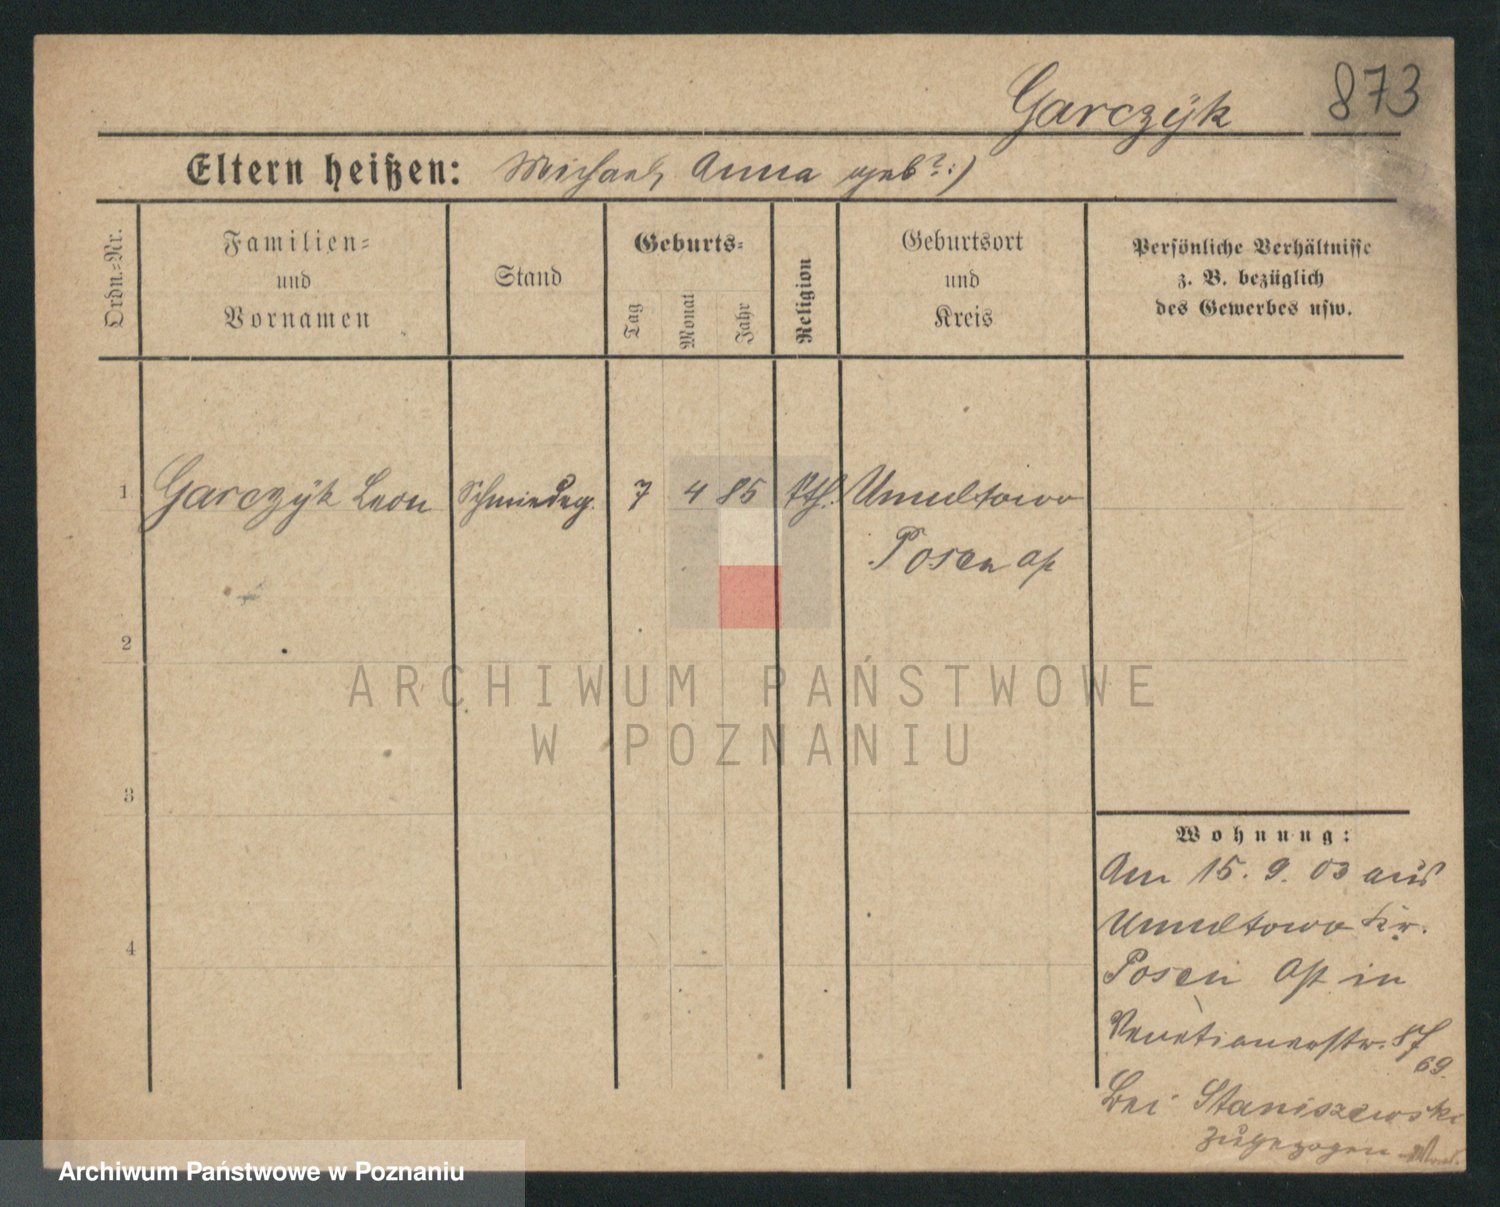 Garczÿk 873
Eltern heißen: Michael, Anna geb?:)
Ordn.=Nr.
Familien=
und
Vornamen
Stand
Geburts=
Tag
Monat
Jahr
Religion
Geburtsort
und
Kreis
Persönliche Verhältnisse
z. B. bezüglich
des Gewerbes usw.
1 Garczÿk Leon Schmiedeg. 7 4 85 kth. Umultowo
Posen
2
3
4
Wohnung:
Am 15. 9. 03 aus
Umultowo Kr.
Posen Ost in
Venetianerstr. 8
69
bei Staniszewski
zugezogen
ARCHIWUM PAŃSTWOWE
W POZNANIU
Archiwum Państwowe w Poznaniu